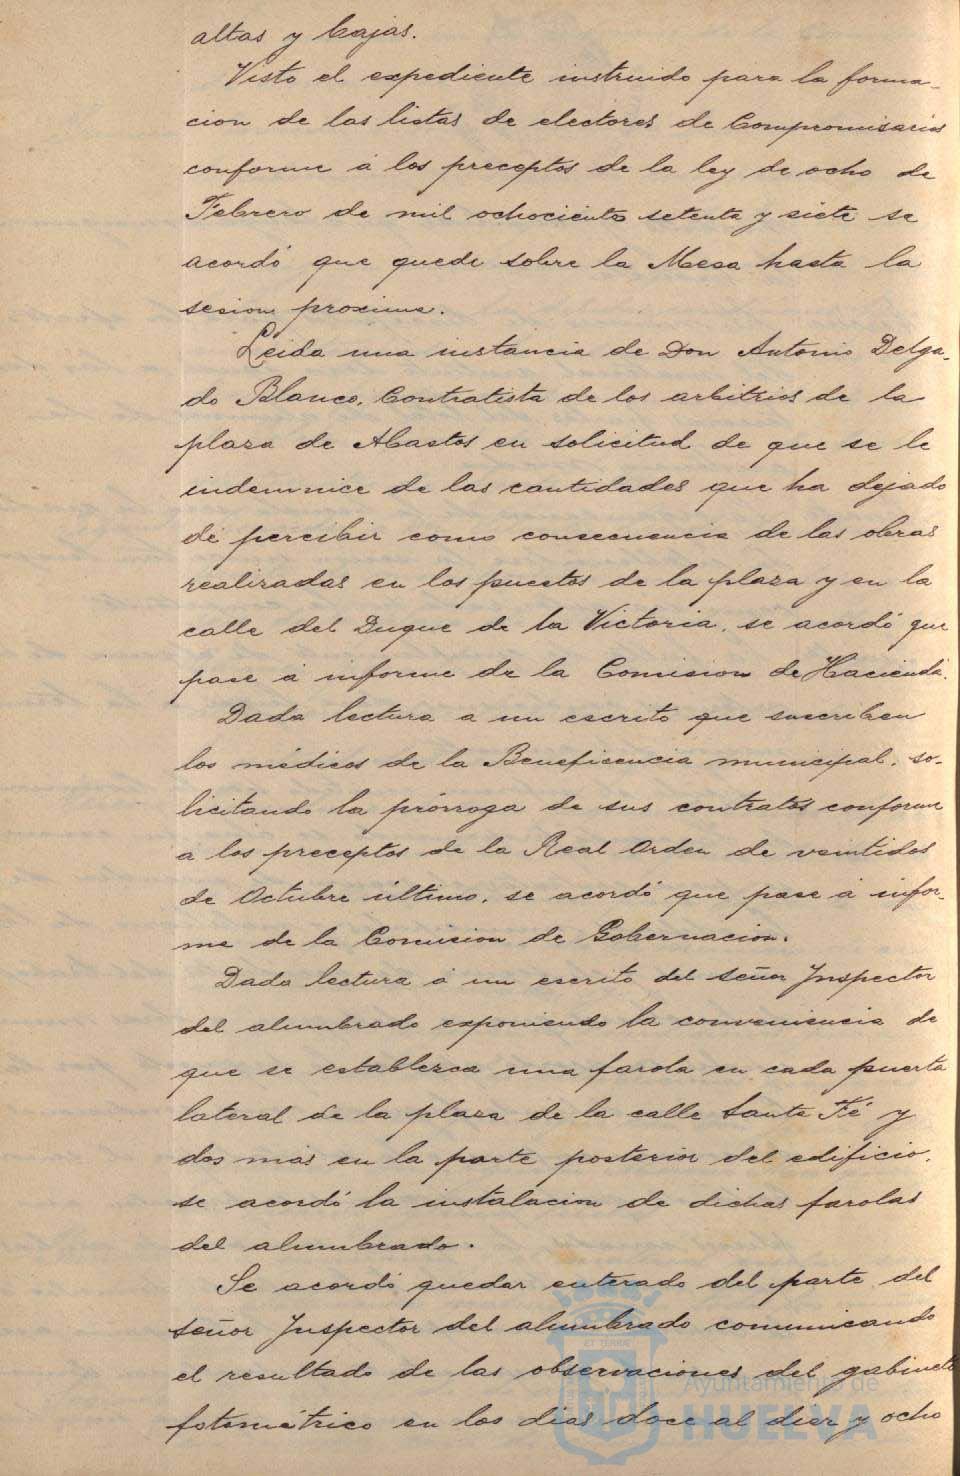 altas y bajas.
Visto el expediente instruido para la forma-
cion de las listas de electores de Compromisarios
conforme á los preceptos de la ley de ocho de
Febrero de mil ochociento setenta y siete se
acordó que quede sobre la Mesa hasta la
sesion proxima.
Leida una instancia de Don Antonio Delga-
do Blanco, Contratista de los arbitrios de la
plaza de Abastos en solicitud de que se le
indemnice de las cantidades que ha dejado
de percibir como consecuencia de las obras
realizadas en los puestos de la plaza y en la
calle del Duque de la Victoria, se acordó que
pase á informe de la Comision de Hacienda.
Dada lectura a un escrito que suscriben
los médicos de la Beneficencia municipal, so-
licitando la prórroga de sus contratos conforme
a los preceptos de la Real Orden de veintidos
de Octubre último, se acordó que pase á infor-
me de la Comision de Gobernacion.
Dada lectura á un escrito del señor Inspector
del alumbrado exponiendo la conveniencia de
que se establezca una farola en cada puerta
lateral de la plaza de la calle Santa Fé y
dos más en la parte posterior del edificio,
se acordó la instalacion de dichas farolas
del alumbrado.
Se acordó quedar enterado del parte del
señor Inspector del alumbrado comunicando
el resultado de las observaciones del gabinete
fotométrico en los dias doce al diez y ocho
Ayuntamiento de
HUELVA